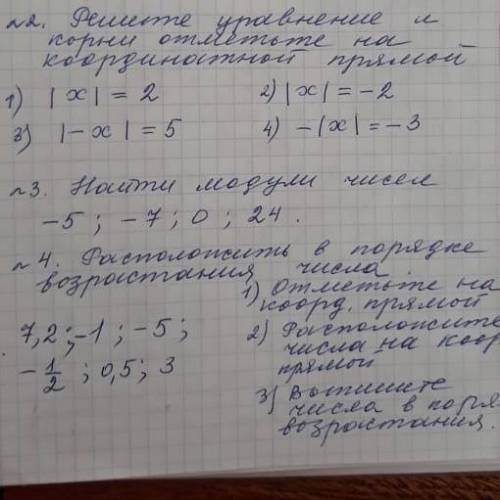 №2. Решите уравнение и
корни отметьте на
координатной прямой
1) |x| = 2 2) |x| = -2
3) |-x| = 5 4) -|x| = -3
№3. Найти модули чисел
-5 ; -7 ; 0 ; 24 .
№4. Расположить в порядке
возрастания числа
7,2 ; -1 ; -5 ;
-1/2 ; 0,5 ; 3
1) Отметьте на
коорд. прямой
2) Расположите
числа на коор
прямой
3) Выпишите
числа в поря
возрастания.